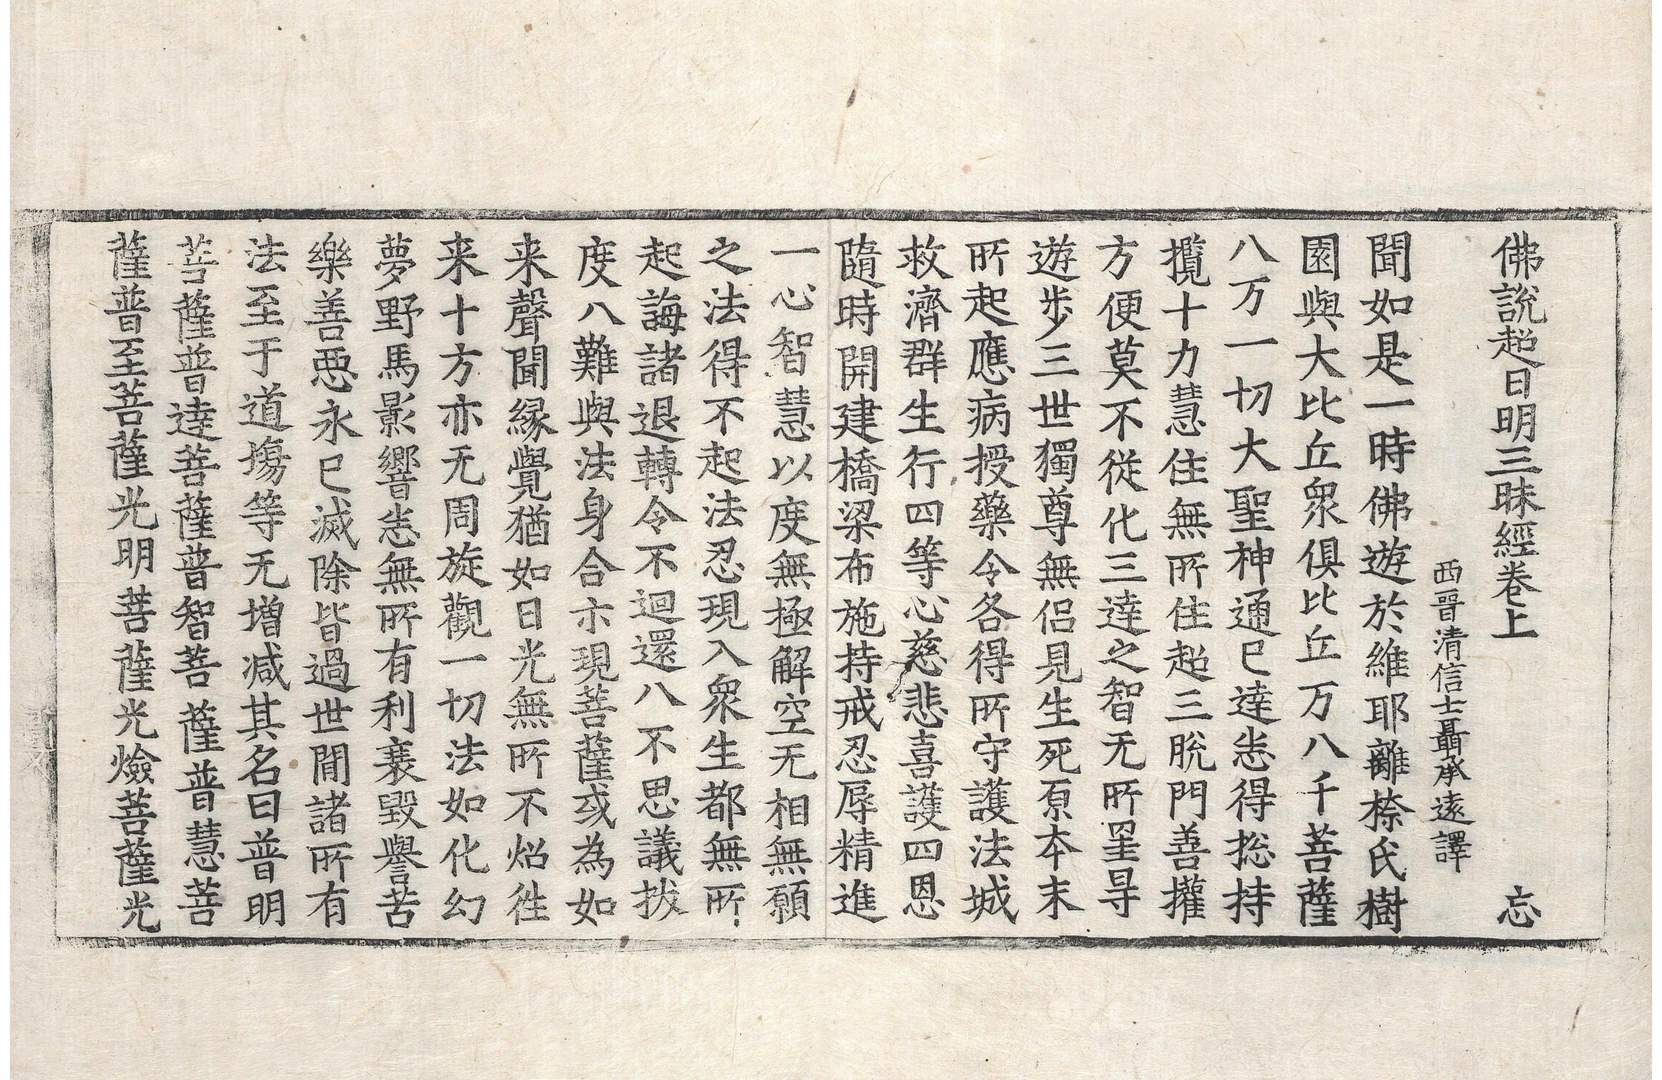 佛說超日明三昧經卷上 忘
西晉清信士聶承遠譯
聞如是一時佛遊於維耶離㮈氏樹
園與大比丘衆俱比丘万八千菩薩
八万一切大聖神通已達悉得捴持
攬十力慧住無所住超三脫門善權
方便莫不從化三達之智无所罣㝵
遊步三世獨尊無侣見生死原本末
所起應病授藥令各得所守護法城
救濟群生行四等心慈悲喜護四恩
隨時開建橋梁布施持戒忍辱精進
一心智慧以度無極解空无相無願
之法得不起法忍現入衆生都無所
起誨諸退轉令不迴還八不思議拔
度八難與法身合示現菩薩或為如
来聲聞緣覺猶如日光無所不炤徃
来十方亦无周旋觀一切法如化幻
夢野馬影響悉無所有利衰毀譽苦
樂善惡永已滅除皆過世間諸所有
法至于道塲等无增减其名曰普明
菩薩普達菩薩普智菩薩普慧菩
薩普至菩薩光明菩薩光燄菩薩光